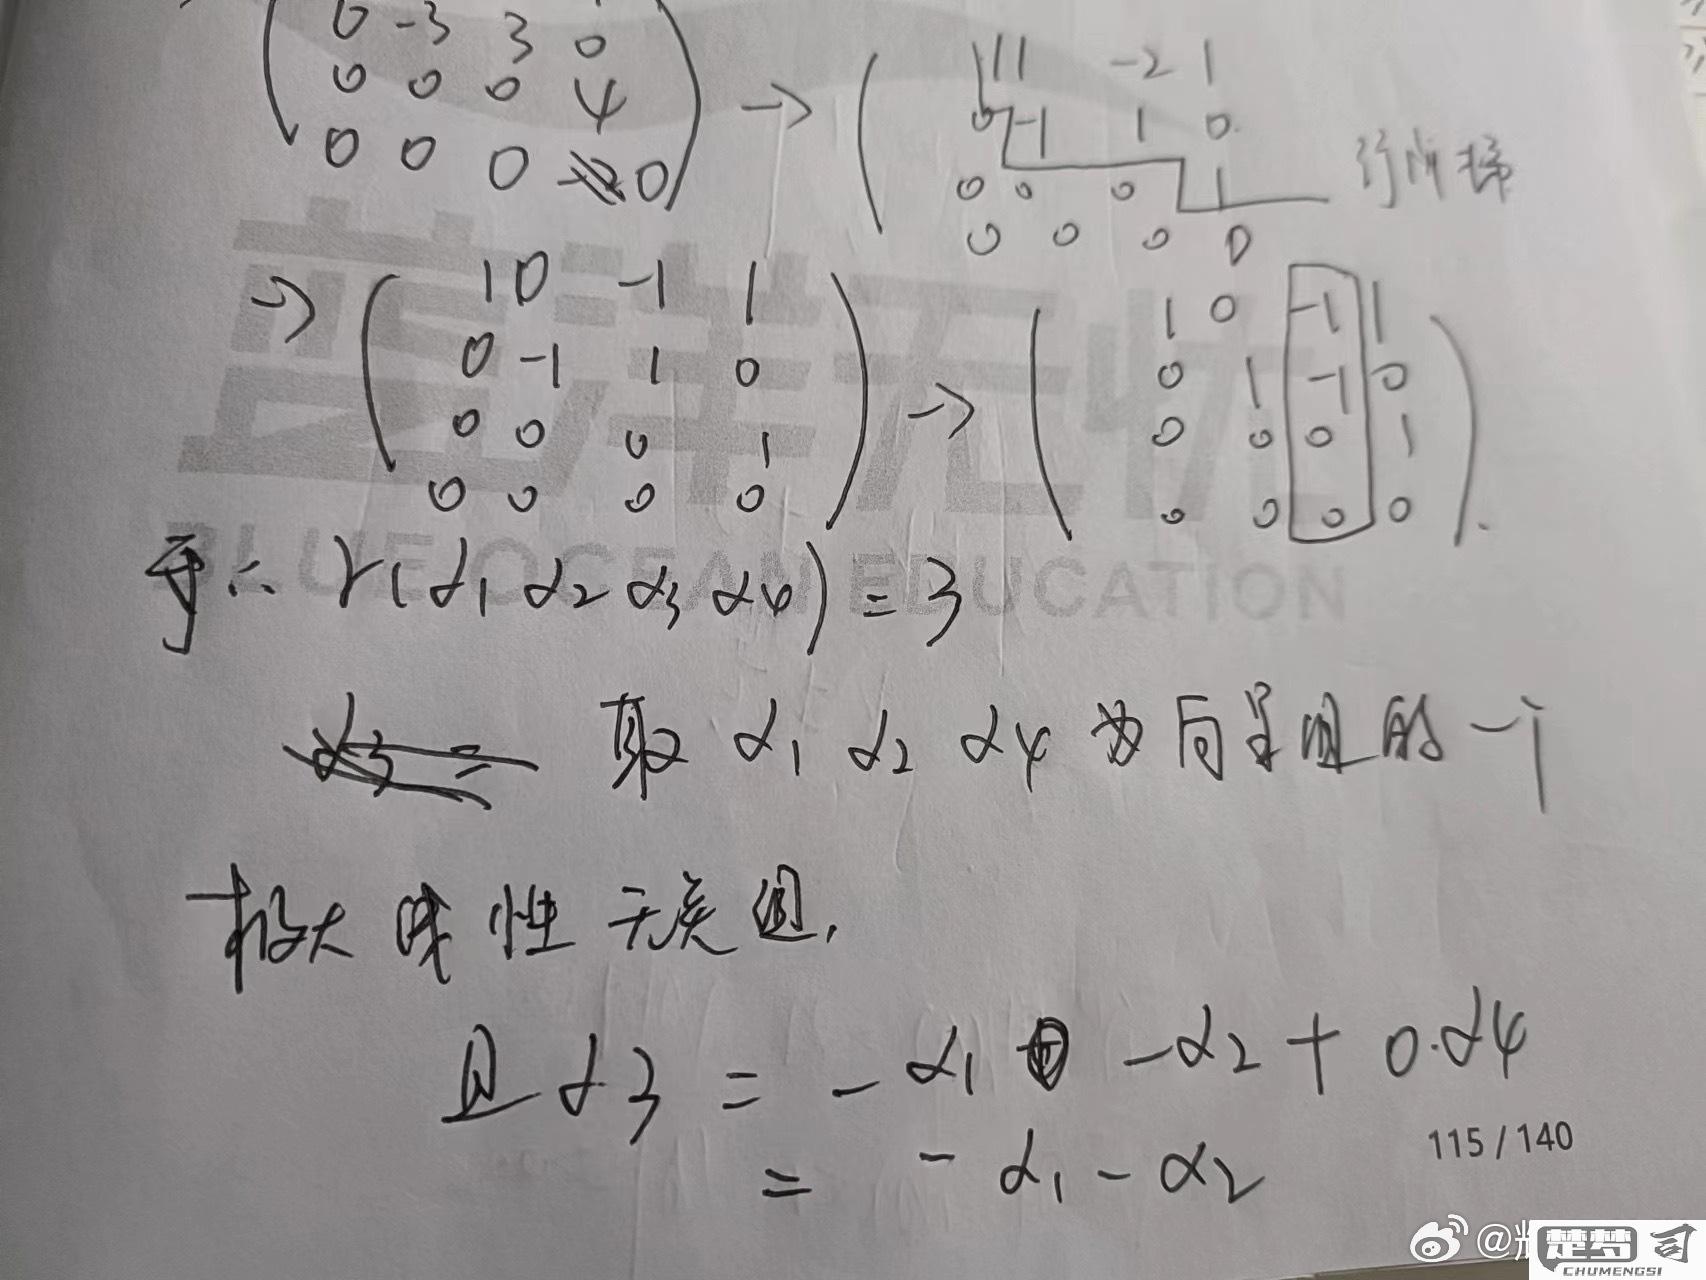 0 -3 3 0
0 0 0 4 → 1 1 -2 1
0 0 0 0 0 -1 1 0
0 0 0 1 行阶梯
0 0 0 0
→ 1 0 -1 1 → 1 0 -1 1
0 -1 1 0 0 1 -1 0
0 0 0 1 0 0 0 1
0 0 0 0 0 0 0 0
蓝海无忧
BLUE OCEAN EDUCATION
∴ r(α1 α2 α3 α4) = 3
取 α1 α2 α4 为向量组的一个
极大线性无关组.
且 α3 = -α1 -α2 + 0·α4
= -α1 - α2
115 / 140
@
楚梦司
CHUMENGSI